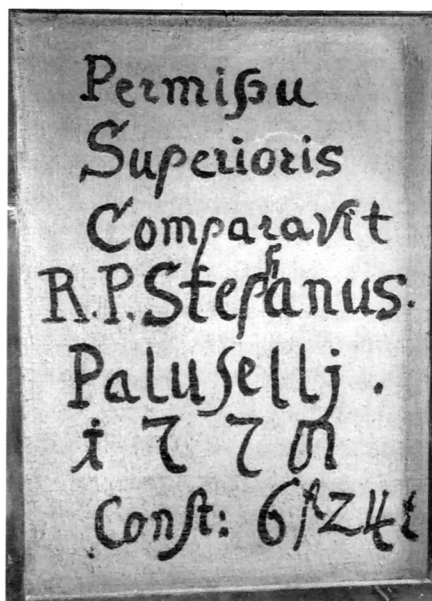 Permißu
Superioris
Comparavit
R.P. Stephanus.
Paluſellj .
Conſt: